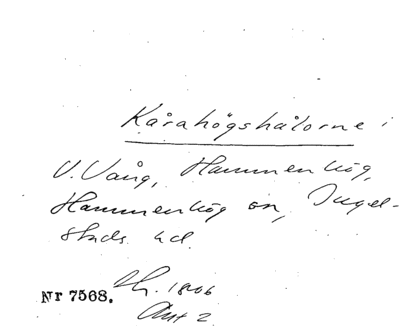 Kårahögshålorne i
V. Vång, Hammenhög,
Hammenhög sn, Ingel-
stads hd.
Nr 7568. 1806
Akt 2